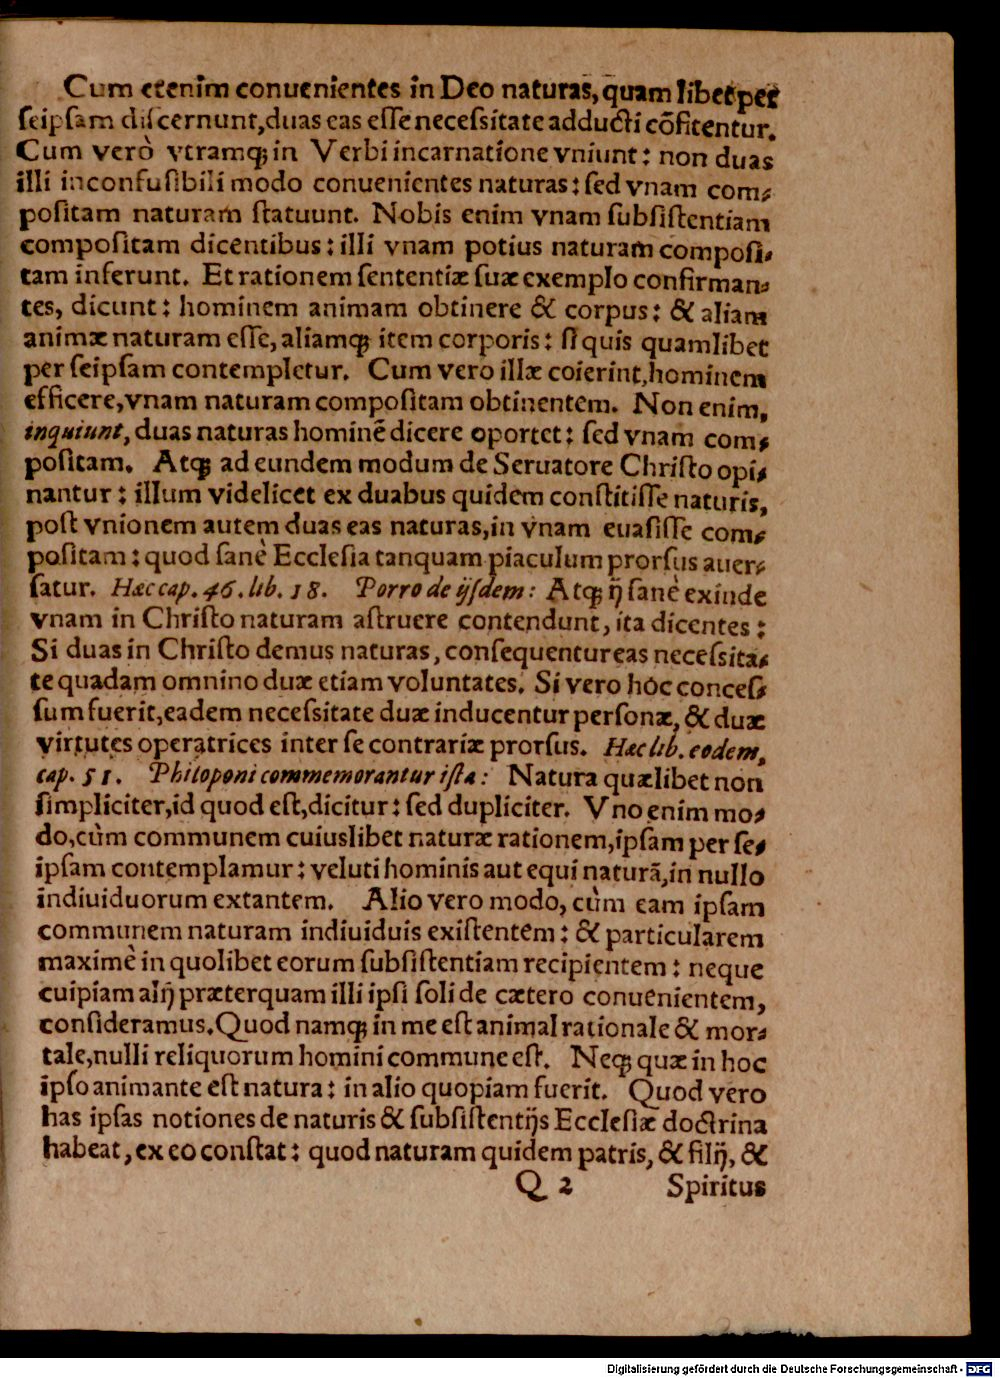 Cum etenim conuenientes in Deo naturas, quam libet per
ſeipſam diſcernunt, duas eas eſſe neceſsitate adducti cōfitentur.
Cum verò vtramq́; in Verbi incarnatione vniunt: non duas
illi inconfuſibili modo conuenientes naturas: ſed vnam com⸗
poſitam naturam ſtatuunt. Nobis enim vnam ſubſiſtentiam
compoſitam dicentibus: illi vnam potius naturam compoſi⸗
tam inferunt. Et rationem ſententiæ ſuæ exemplo confirman⸗
tes, dicunt: hominem animam obtinere & corpus: & aliam
animæ naturam eſſe, aliamq́; item corporis: ſi quis quamlibet
per ſeipſam contempletur. Cum vero illæ coierint, hominem
efficere, vnam naturam compoſitam obtinentem. Non enim,
inquiunt, duas naturas hominē dicere oportet: ſed vnam com⸗
poſitam. Atq́; ad eundem modum de Seruatore Chriſto opi⸗
nantur: illum videlicet ex duabus quidem conſtitiſſe naturis,
poſt vnionem autem duas eas naturas, in vnam euaſiſſe com⸗
poſitam: quod ſanè Eccleſia tanquam piaculum prorſus auer⸗
ſatur. Hæc cap. 46. lib. 18. Porro de ijſdem: Atq́; ij ſanè exinde
vnam in Chriſto naturam aſtruere contendunt, ita dicentes:
Si duas in Chriſto demus naturas, conſequentur eas neceſsita⸗
te quadam omnino duæ etiam voluntates. Si vero hoc conceſ⸗
ſum fuerit, eadem neceſsitate duæ inducentur perſonæ, & duæ
virtutes operatrices inter ſe contrariæ prorſus. Hæc lib. eodem,
cap. 51. Philoponi commemorantur iſta: Natura quælibet non
ſimpliciter, id quod eſt, dicitur: ſed dupliciter. Vno enim mo⸗
do, cùm communem cuiuslibet naturæ rationem, ipſam per ſe⸗
ipſam contemplamur: veluti hominis aut equi naturā, in nullo
indiuiduorum extantem. Alio vero modo, cùm eam ipſam
communem naturam indiuiduis exiſtentem: & particularem
maximè in quolibet eorum ſubſiſtentiam recipientem: neque
cuipiam alij præterquam illi ipſi ſoli de cætero conuenientem,
conſideramus. Quod namq́; in me eſt animal rationale & mor⸗
tale, nulli reliquorum homini commune eſt. Neq́; quæ in hoc
ipſo animante eſt natura: in alio quopiam fuerit. Quod vero
has ipſas notiones de naturis & ſubſiſtentijs Eccleſiæ doctrina
habeat, ex eo conſtat: quod naturam quidem patris, & filij, &
Q 2 Spiritus
Digitalisierung gefördert durch die Deutsche Forschungsgemeinschaft - DFG